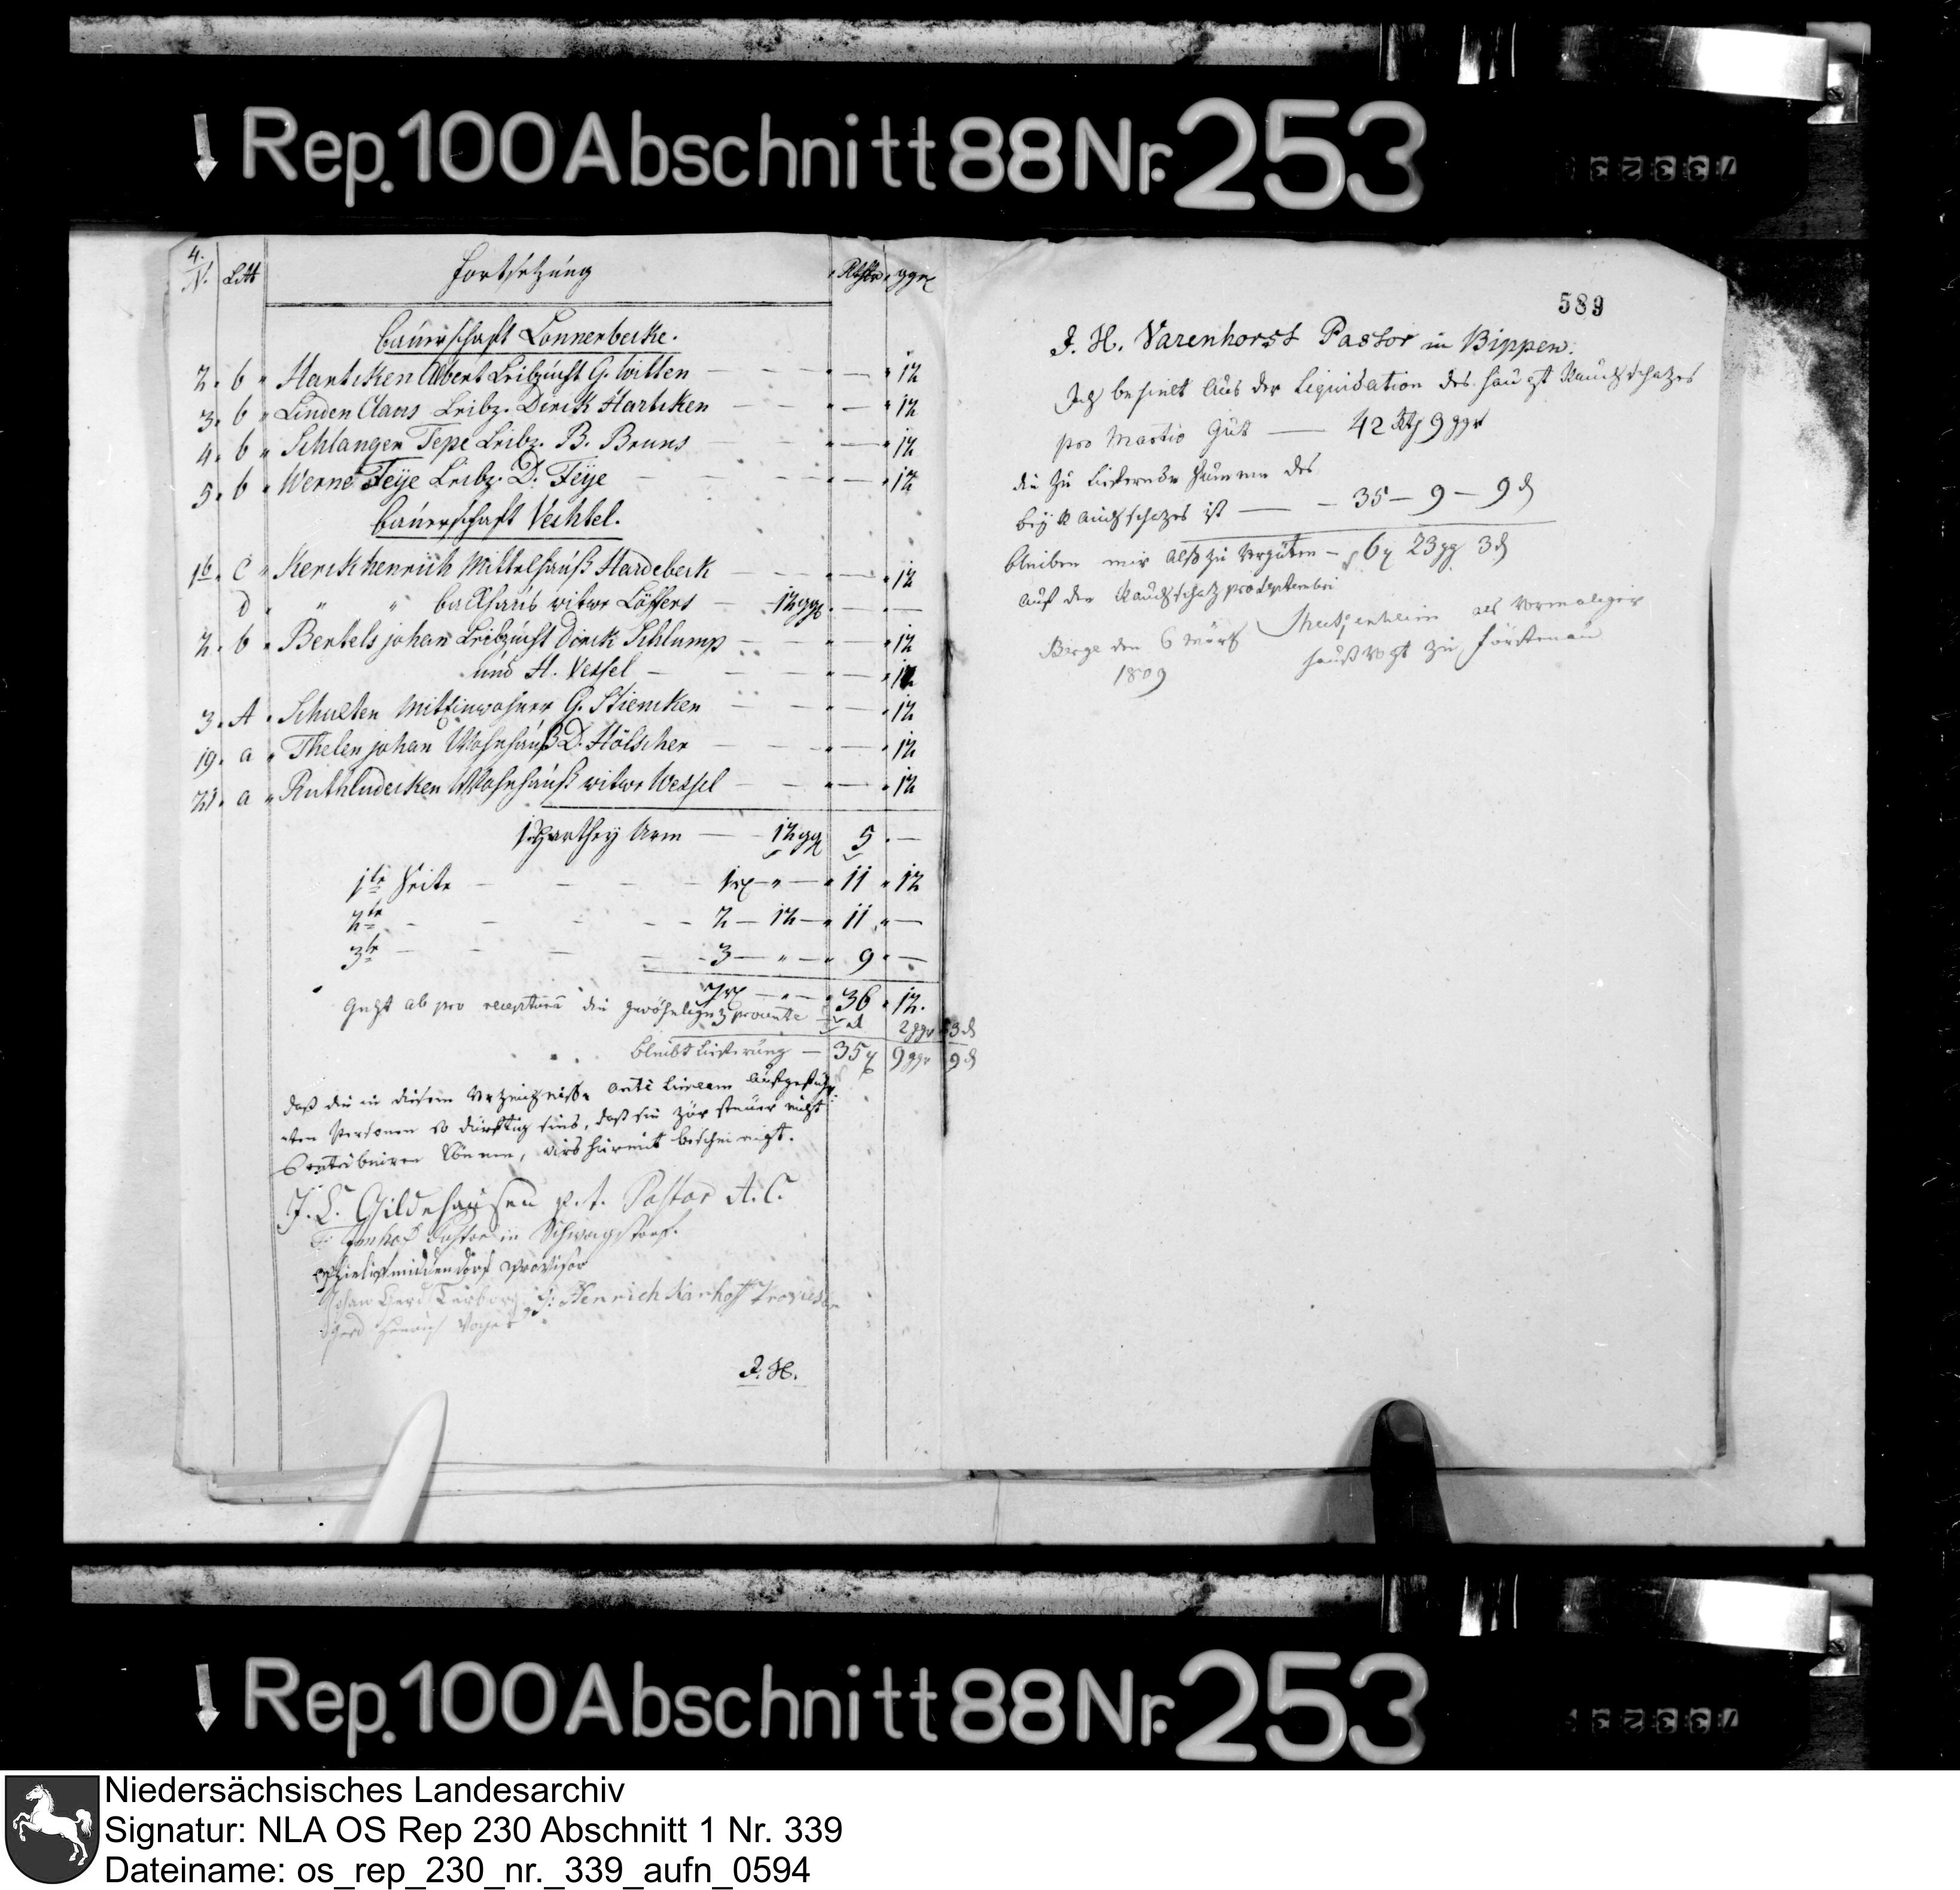 Rep. 100 Abschnitt 88 Nr. 253
4.
N. Litt Fortsetzung Rthlr ggr
Bauerschaft Lonnerbecke.
2. b " Hartcken Albert Leibzucht G. Witten — — — " 12
3. b " Linden Claus Leibz. Dirck Hartcken — — — " 12
4. b " Schlangen Tepe Leibz. B. Bruns — — — " 12
5. b " Werne Feye Leibz. D. Feye — — — " 12
Bauerschaft Vechtel.
16. C " Kerckhenrich Mittelhauß Hardebeck — — — " 12
d " " " Backhaus witwe Löffers — 12 ggr — —
2. b " Bertels johan Leibzucht Dirck Schlump — — — " 12
und H. Vessel — — — " 12
3. A " Schulten Miteinwohner G. Stiencken — — — " 12
19. a " Thelen johan Wohnhauß D. Hölscher — — — " 12
21. a " Ruthludecken Wohnhauß witwe Wessel — — — " 12
1 Parthey Arm — 12 ggr 5 " —
1te Seite — — — — 1 rt — " — " 11 " 12
2te — — — — 2 — 12 — " 11 " —
3te — — — — 3 — " — " 9 " —
7 rt — " — " 36 " 12.
Geht ab pro receptura die gewöhnligen 3 procente 1 rt 2 ggr 3 d
bleibt Lieferung — 35 rt 9 ggr 9 d
daß die in diesem Verzeichnisse ante lineam aufgeführ-
ten Personen so dürftig sind, daß sie zur steuer nicht
Contribuiren können, wird hiermit bescheinigt.
J. L. Gildehausen p. t. Pastor A. C.
Pastor in Schwagstorf.
middendorf Provisor
Johan Gerd J: Henrich Narhoff Provisor
Gerd Henrich
J. H.
589
J. H. Varenhorst Pastor in Bippen.
Ich behielt Aus der Liquidation des haupt Rauchschatzes
pro Martio Gut — 42 Rt 9 ggr
die zu liefernde Summe des
bey Rauchschatzes ist — — 35 — 9 — 9 d
bleiben mir also zu Vergüten — 6 rt 23 gg 3 d
auf den Rauchschatz pro Septembri
Berge den 6 März als Vormaliger
1809 Vogt zu Fürstenau
Rep. 100 Abschnitt 88 Nr. 253
Niedersächsisches Landesarchiv
Signatur: NLA OS Rep 230 Abschnitt 1 Nr. 339
Dateiname: os_rep_230_nr._339_aufn_0594